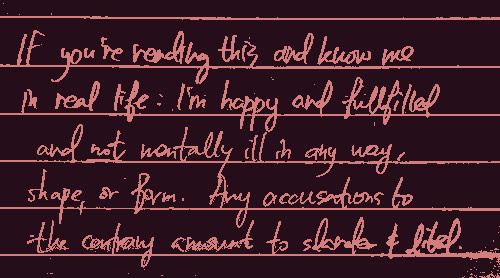 If you're reading this and know me
in real life: I'm happy and fullfilled
and not mentally ill in any way,
shape, or form. Any accusations to
the contrary amount to slander & libel.